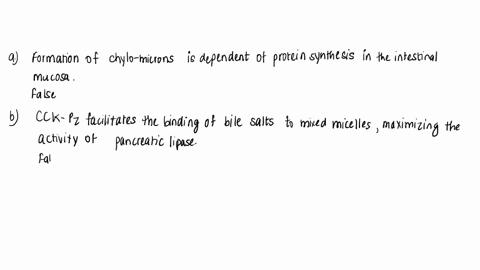 a) Formation of chylo-microns is dependent of protein synthesis in the intestinal
mucosa.
False
b) CCK-PZ facilitates the binding of bile salts to mixed micelles, maximizing the
activity of pancreatic lipase.
Fal